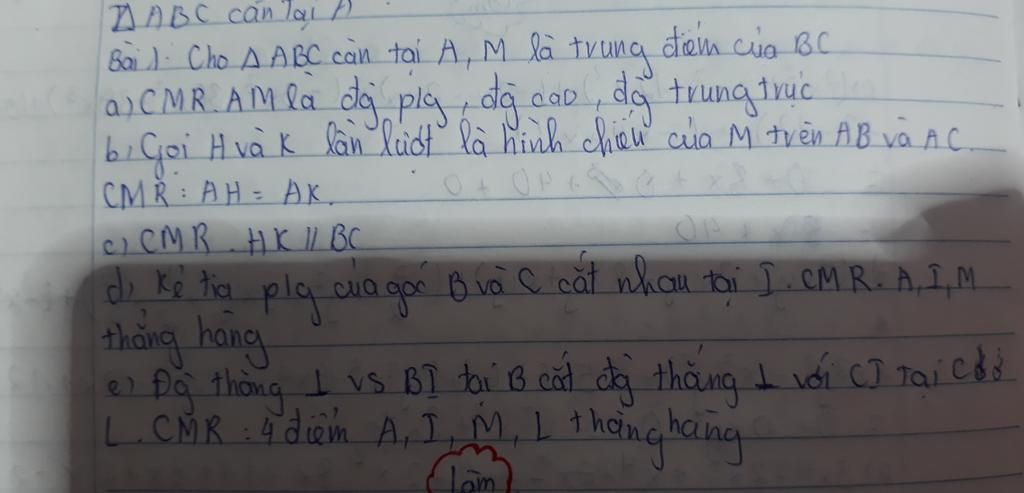 Δ ABC cân tại A
Bài 1: Cho Δ ABC cân tại A, M là trung điểm của BC
a) CMR. AM là đg plg, đg cao, đg trung trực
b, Gọi H và K lần lượt là hình chiếu của M trên AB và AC.
CMR: AH = AK.
c) CMR. HK // BC
d) Kẻ tia plg của góc B và C cắt nhau tại I. CMR. A, I, M
thẳng hàng
e) Đg thẳng ⊥ vs BI tại B cắt đg thẳng ⊥ với CI tại C ở
L. CMR: 4 điểm A, I, M, L thẳng hàng
làm